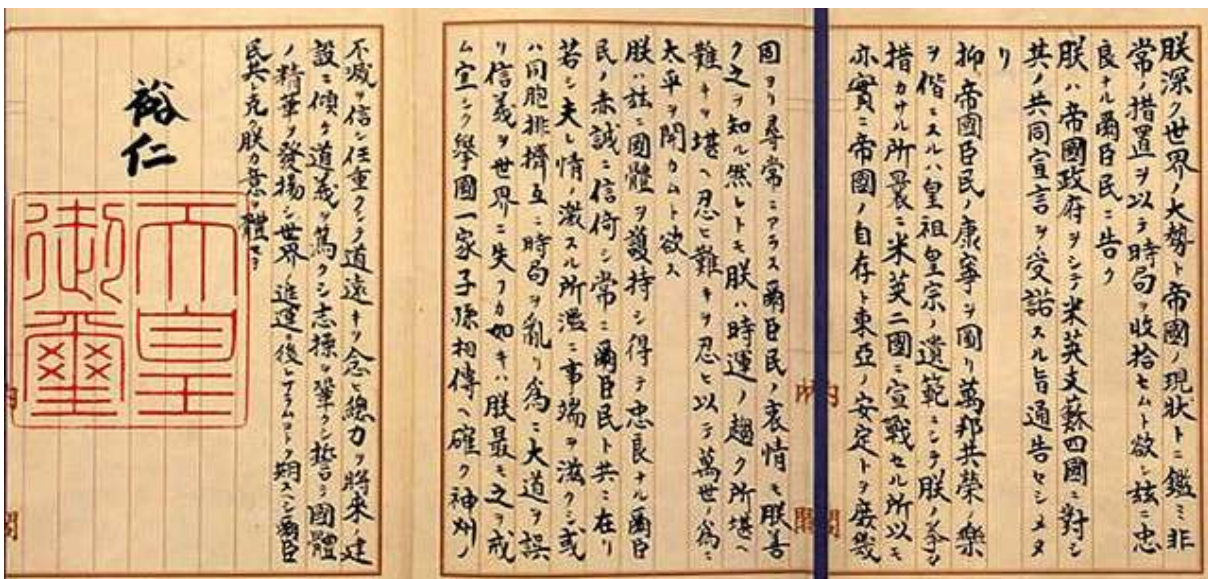 朕深ク世界ノ大勢ト帝國ノ現狀トニ鑑ミ非
常ノ措置ヲ以テ時局ヲ收拾セムト欲シ玆ニ忠
良ナル爾臣民ニ告ク
朕ハ帝國政府ヲシテ米英支蘇四國ニ對シ
其ノ共同宣言ヲ受諾スル旨通告セシメタ
リ
抑帝國臣民ノ康寧ヲ圖リ萬邦共榮ノ樂
ヲ偕ニスルハ皇祖皇宗ノ遺範ニシテ朕ノ拳々
措カサル所曩ニ米英二國ニ宣戰セル所以モ
亦實ニ帝國ノ自存ト東亞ノ安定トヲ庶幾
内閣
固ヨリ尋常ニアラス爾臣民ノ衷情モ朕善
ク之ヲ知ル然レトモ朕ハ時運ノ趨ク所堪ヘ
難キヲ堪ヘ忍ヒ難キヲ忍ヒ以テ萬世ノ爲ニ
太平ヲ開カムト欲ス
朕ハ玆ニ國體ヲ護持シ得テ忠良ナル爾臣
民ノ赤誠ニ信倚シ常ニ爾臣民ト共ニ在リ
若シ夫レ情ノ激スル所濫ニ事端ヲ滋クシ或
ハ同胞排擠互ニ時局ヲ亂リ爲ニ大道ヲ誤
リ信義ヲ世界ニ失フカ如キハ朕最モ之ヲ戒
ム宜シク擧國一家子孫相傳ヘ確ク神州ノ
不滅ヲ信シ任重クシテ道遠キヲ念ヒ總力ヲ將來ノ建
設ニ傾ケ道義ヲ篤クシ志操ヲ鞏クシ誓テ國體
ノ精華ヲ發揚シ世界ノ進運ニ後レサラムコトヲ期スヘシ爾臣
民其レ克ク朕カ意ヲ體セヨ
裕仁
天皇
御璽